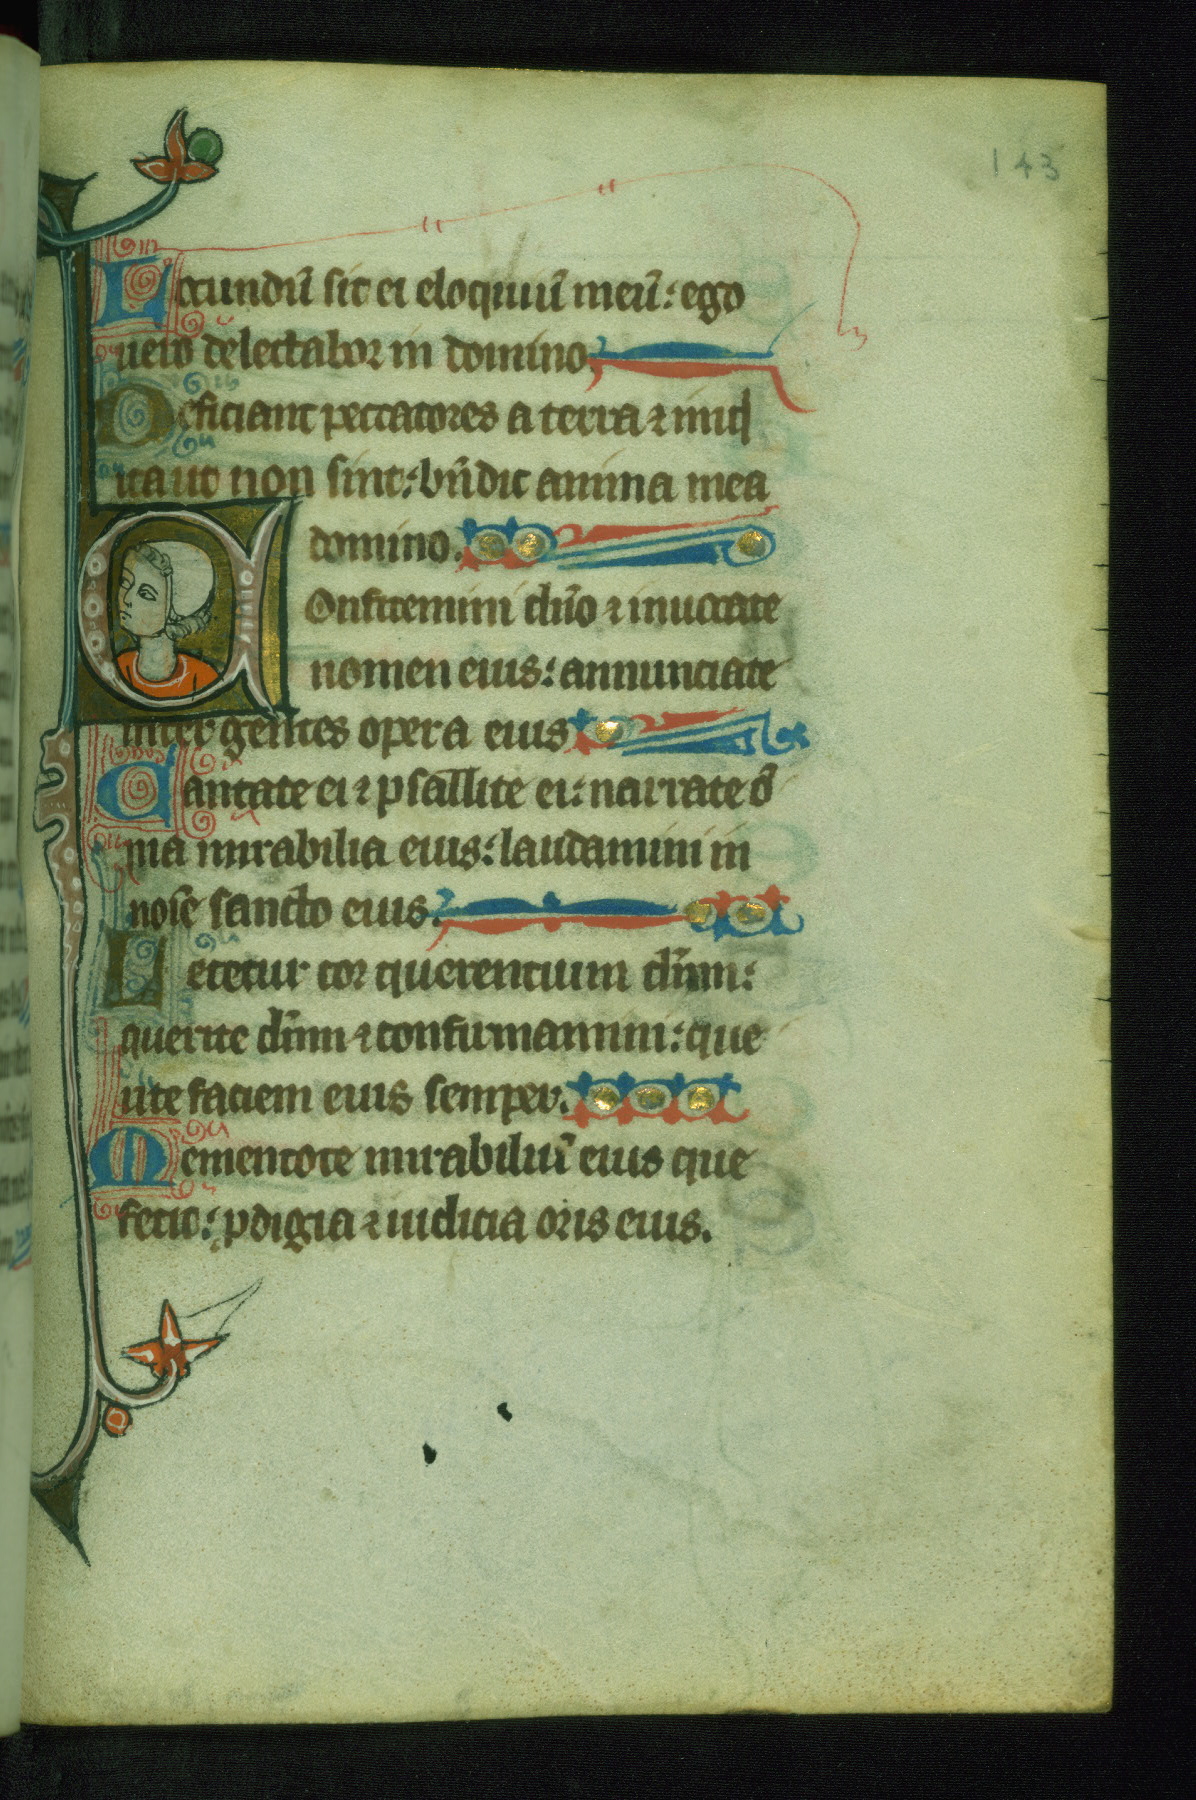 143
Iocundū sit ei eloquiū meū: ego
uero delectabor in domino.
Deficiant peccatores a terra ⁊ iniq̄
ita ut non sint: bn̄dic anima mea
domino.
Confitemini dn̄o ⁊ inuocate
nomen eius: annunciate
inter gentes opera eius
Cantate ei ⁊ psallite ei: narrate ō
nia mirabilia eius: laudamini in
noīe sancto eius.
Letetur cor querentium dn̄m:
querite dn̄m ⁊ confirmamini: que
rite faciem eius semper.
Mementote mirabiliū eius que
fecit: ꝓdigia ⁊ iudicia oris eius.